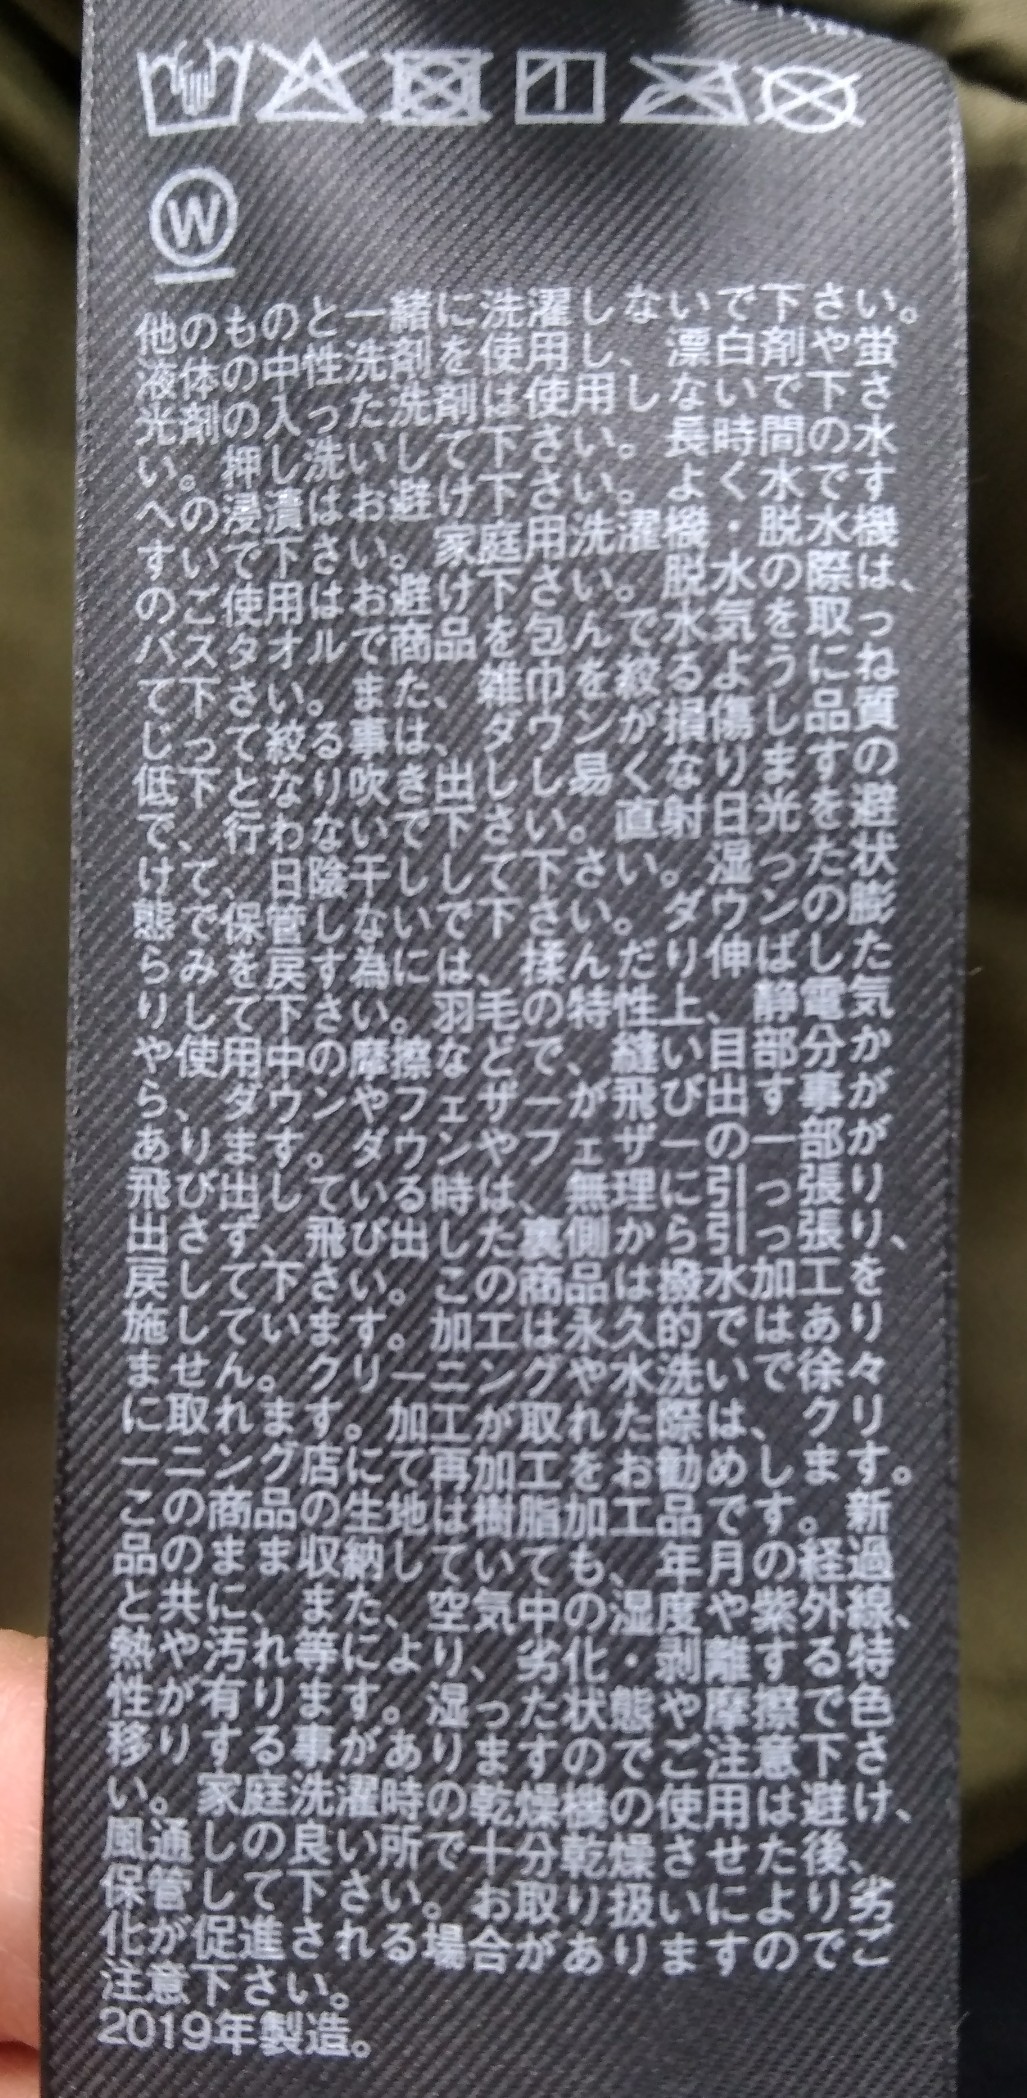 W
他のものと一緒に洗濯しないで下さい。
液体の中性洗剤を使用し、漂白剤や蛍
光剤の入った洗剤は使用しないで下さ
い。押し洗いして下さい。長時間の水
への浸漬はお避け下さい。よく水です
すいで下さい。家庭用洗濯機・脱水機
のご使用はお避け下さい。脱水の際は、
バスタオルで商品を包んで水気を取っ
て下さい。また、雑巾を絞るようにね
じって絞る事は、ダウンが損傷し品質
低下となり吹き出し易くなりますの
で、行わないで下さい。直射日光を避
けて、日陰干しして下さい。湿った状
態で保管しないで下さい。ダウンの膨
らみを戻す為には、揉んだり伸ばした
りして下さい。羽毛の特性上、静電気
や使用中の摩擦などで、縫い目部分か
ら、ダウンやフェザーが飛び出す事が
あります。ダウンやフェザーの一部が
飛び出している時は、無理に引っ張り
出さず、飛び出した裏側から引っ張り、
戻して下さい。この商品は撥水加工を
施しています。加工は永久的ではあり
ません。クリーニングや水洗いで徐々
に取れます。加工が取れた際は、クリ
ーニング店にて再加工をお勧めします。
この商品の生地は樹脂加工品です。新
品のまま収納していても、年月の経過
と共に、また、空気中の湿度や紫外線、
熱や汚れ等により、劣化・剥離する特
性が有ります。湿った状態や摩擦で色
移りする事がありますのでご注意下さ
い。家庭洗濯時の乾燥機の使用は避け、
風通しの良い所で十分乾燥させた後、
保管して下さい。お取り扱いにより劣
化が促進される場合がありますのでご
注意下さい。
2019年製造。